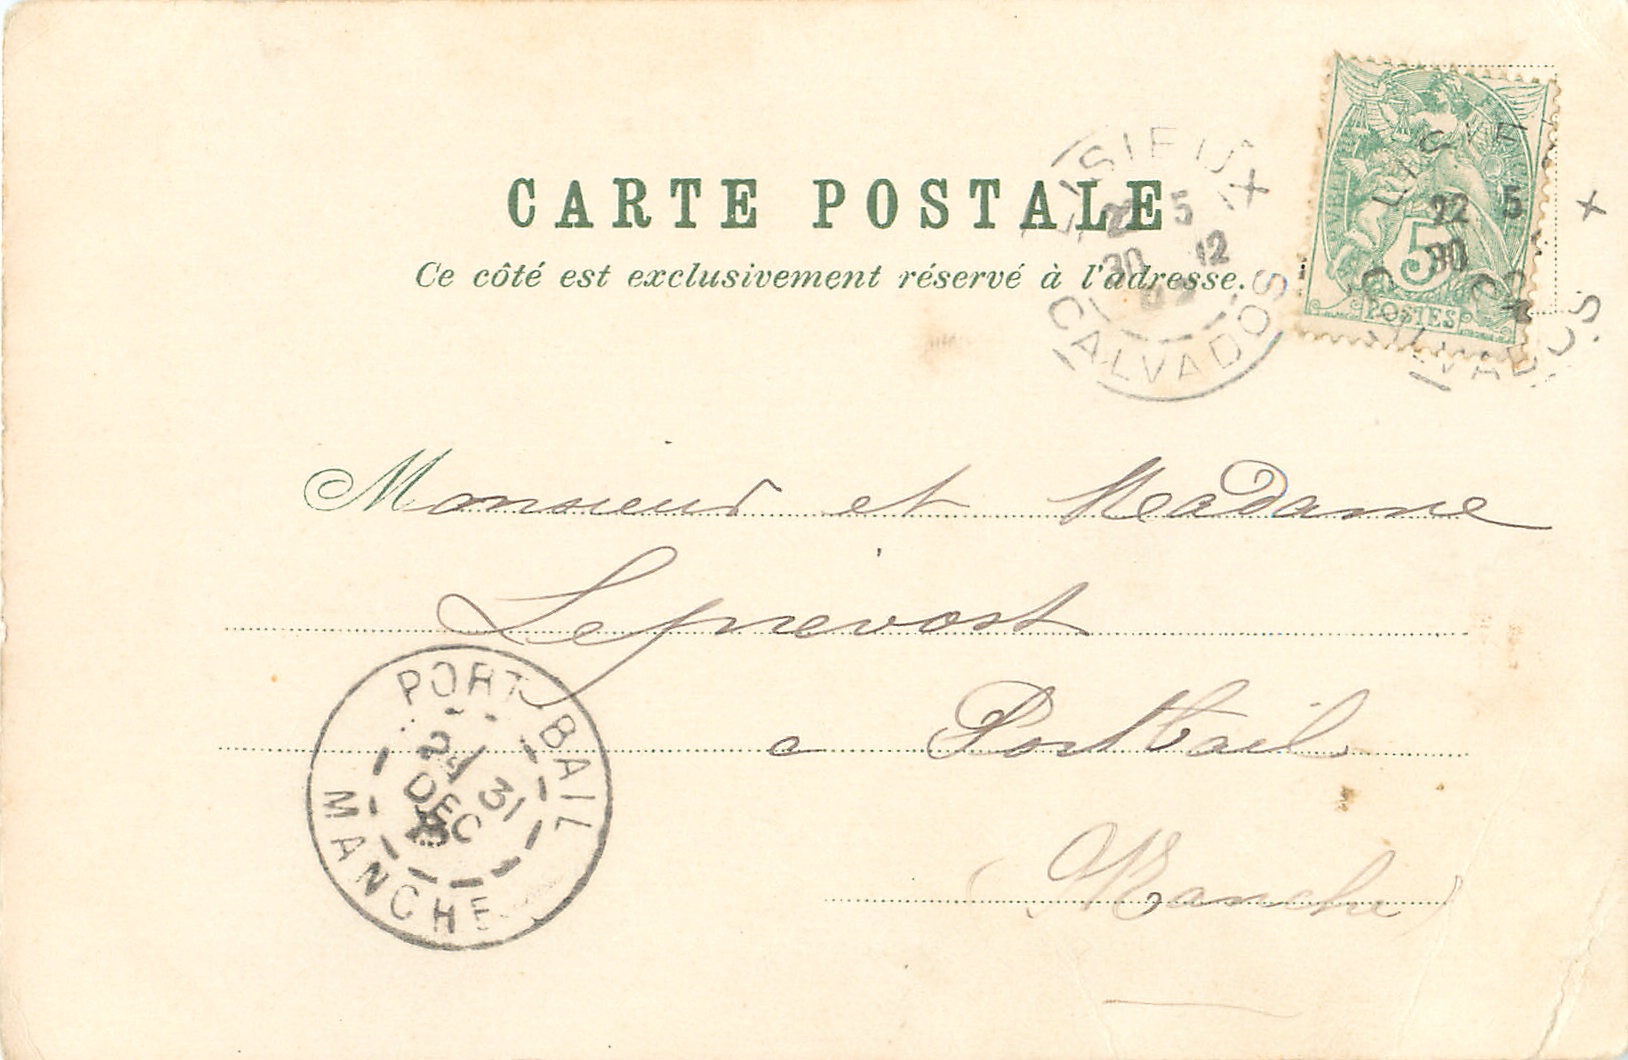 CARTE POSTALE
Ce côté est exclusivement réservé à l'adresse.
LISIEUX
22 5
30 12
CALVADOS
5
POSTES
22 5
30
Monsieur et Madame
Leprevost
a Portbail
(Manche)
PORT-BAIL
31
DEC
MANCHE